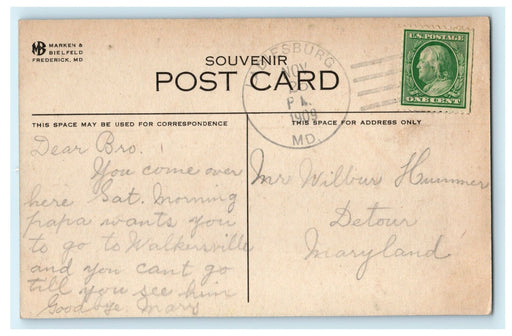 MB MARKEN &
BIELFELD
FREDERICK, MD
SOUVENIR
POST CARD
NOV
P M.
1909
MD.
U.S. POSTAGE
ONE CENT
THIS SPACE MAY BE USED FOR CORRESPONDENCE
THIS SPACE FOR ADDRESS ONLY
Dear Bro.
You come over
here Sat. Morning
papa wants you
to go to Walkersville
and you cant go
till you see him
Goodbye. Mary
Mr Wilbur Hummer
Detour
Maryland